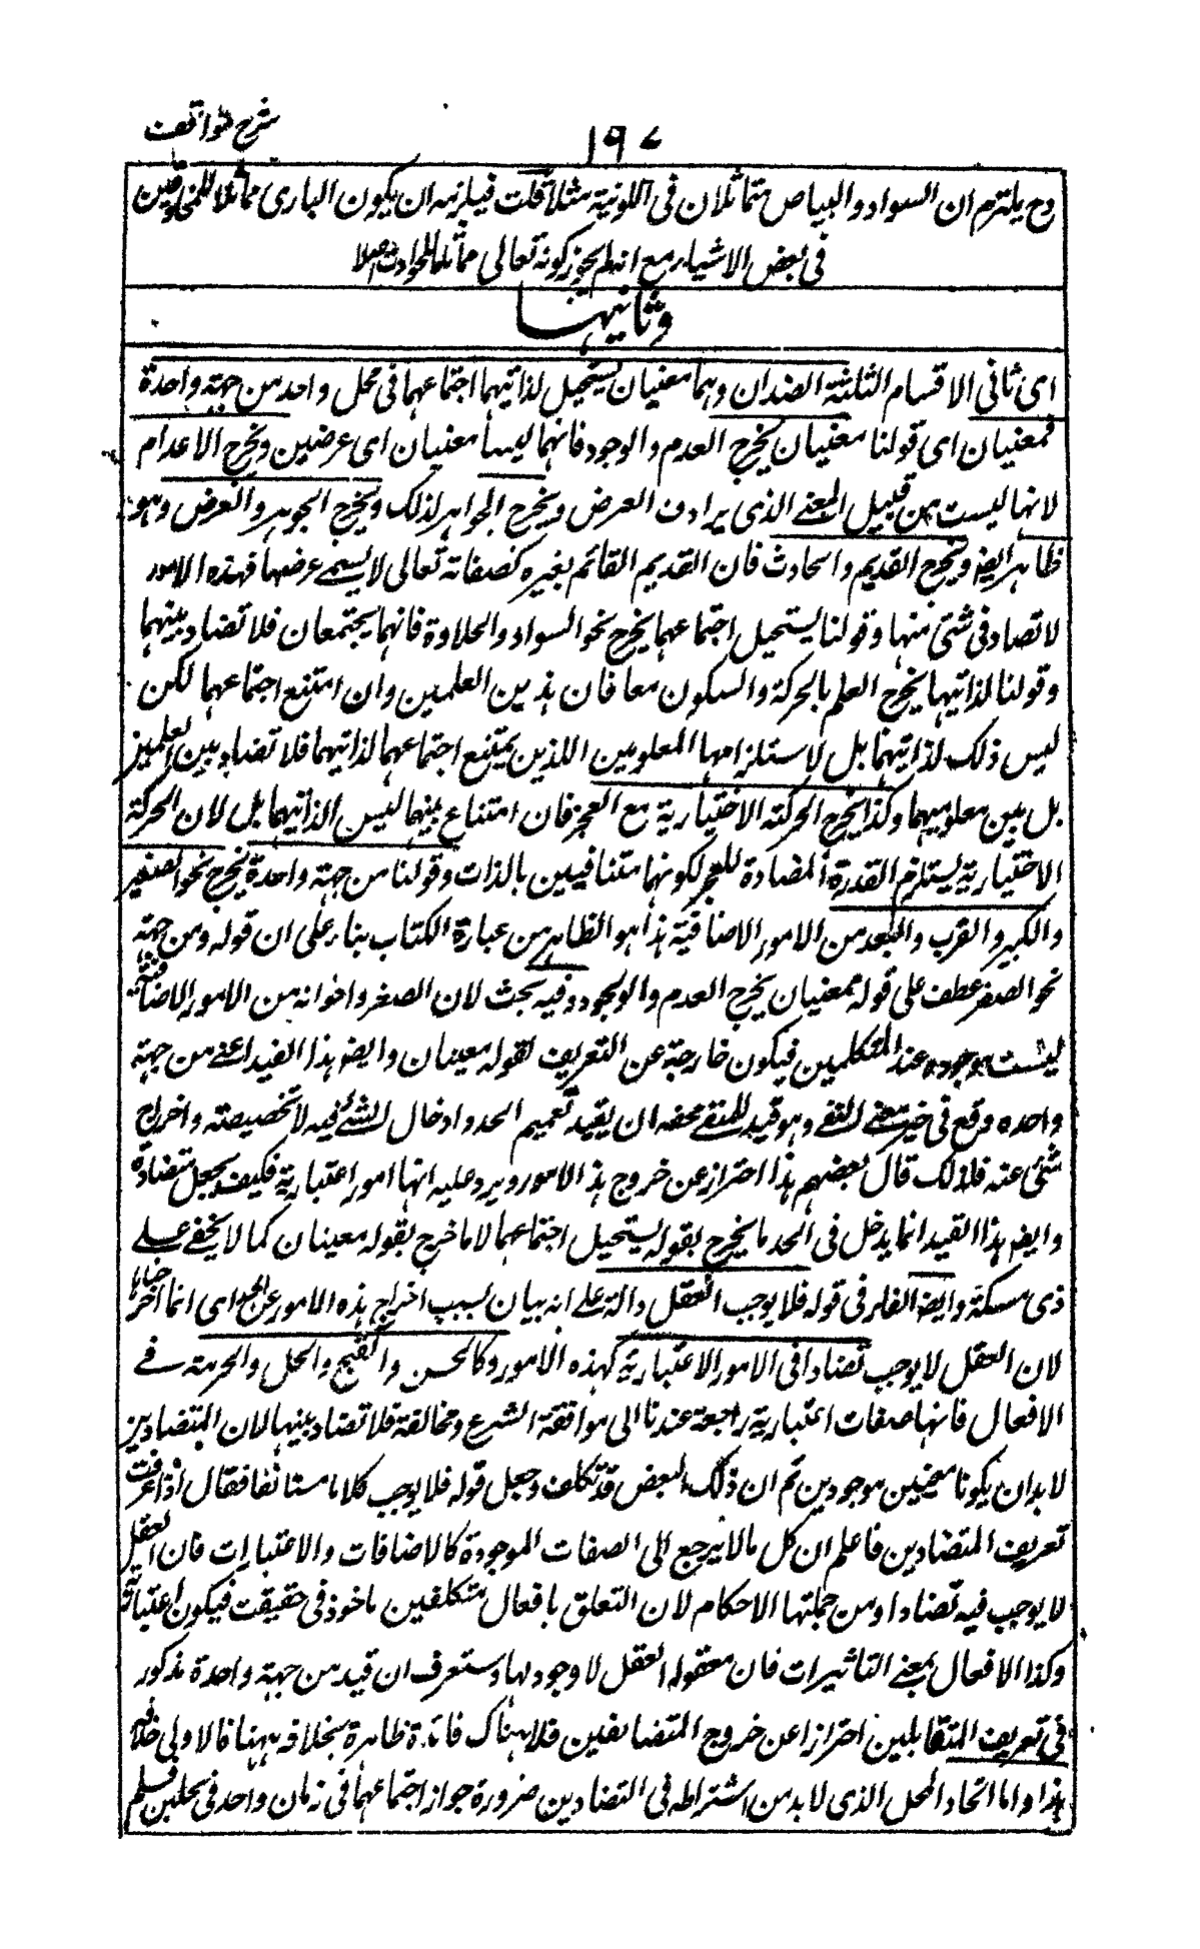 شرح مواقف
١٩٧
وح يلتزم ان السواد والبياض متماثلان فى اللونية مثلا قلت فيلزمه ان يكون البارى مماثلا للمخلوقين
فى بعض الاشياء مع انه لم يجوز كونه تعالى مماثلا للحوادث اصلا
وثانيهـا
اى ثانى الاقسام الثلثة الضدان وهما معنيان يستحيل لذاتيهما اجتماعهما فى محل واحد من جهة واحدة
فمعنيان اى قولنا معنيان يخرج العدم والوجود فانهما ليسا معنيان اى عرضين ويخرج الاعدام
لانها ليست من قبيل المعنے الذى يرادف العرض ويخرج الجواهر لذلك ويخرج الجوهر والعرض وهو
ظاهر ايضا ويخرج القديم والحادث فان القديم القائم بغيره كصفاته تعالى لا يسمے عرضا فهذه الامور
لا تضاد فى شئ منها وقولنا يستحيل اجتماعهما يخرج نحو السواد والحلاوة فانهما يجتمعان فلا تضاد بينهما
وقولنا لذاتيهما يخرج العلم بالحركة والسكون معا فان هذين العلمين وان امتنع اجتماعهما لكن
ليس ذلك لذاتيهما بل لاستلزامهما المعلومين اللذين يمتنع اجتماعهما لذاتيهما فلا تضاد بين العلمين
بل بين معلوميهما وكذا يخرج الحركة الاختيارية مع العجز فان امتناع بينهما ليس لذاتيهما بل لان الحركة
الاختيارية يستلزم القدرة المضادة للعجز لكونهما متنافيين بالذات وقولنا من جهة واحدة يخرج نحو الصغير
والكبير والقرب والبعد من الامور الاضافية هذا هو الظاهر من عبارة الكتاب بناء على ان قوله ومن جهة
نحو الصغر عطف على قوله فمعنيان يخرج العدم والوجود وفيه بحث لان الصغر واخوانه من الامور الاضافية
ليست موجوده عند المتكلمين فيكون خارجة عن التعريف لقوله معنيان وايضا هذا القيد اعنے من جهة
واحده وقع فى حيز معنے النفے وهو قيد للمنفے فحقه ان يفيد تعميم الحد وادخال الشئ فيه لا تخصيصته واخراج
شئ عنه فلذلك قال بعضهم هذا احتراز عن خروج هذ الامور ويرد عليه انها امور اعتبارية فكيف يجعل متضادة
وايضا هذا القيد انما يدخل فى الحد ما يخرج بقوله يستحيل اجتماعهما لا ما خرج بقوله معنيان كما لا يخفے علے
ذى مسكة وايضا الفاء فى قوله فلا يوجب العقل دالة علے انه بيان لسبب اخراج هذه الامور عن الحد اى انما اخرجناها
لان العقل لا يوجب تضادا فى الامور الاعتبارية كهذه الامور وكالحسن والقبح والحل والحرمة فے
الافعال فانها صفات اعتبارية راجعة عندنا الى موافقة الشرع ومخالفة فلا تضاد بينها لان المتضادين
لا بد ان يكونا معنيين موجودين ثم ان ذلك البعض قد تكلف وجعل قوله فلا يوجب كلاما مستانفا فقال اذا عرفت
تعريف المتضادين فاعلم ان كل ما لا يرجع الى الصفات الموجودة كالاضافات والاعتبارات فان العقل
لا يوجب فيه تضادا ومن جملتها الاحكام لان التعلق بافعال متكلفين ماخوذ فى حقيقت فيكون اعتبارية
وكذا الافعال بمعنے التاثيرات فان معقولة العقل لا وجود لها وستعرف ان قيد من جهة واحدة مذكور
فى تعريف المتقابلين احترازا عن خروج المتضايفين فلا هناك فائدة ظاهرة بخلافه ههنا فالاولى حذفه
هذا واما اتحاد المحل الذى لا بد من اشتراطه فى التضادين ضرورة جواز اجتماعهما فى زمان واحد فى محلين فلم